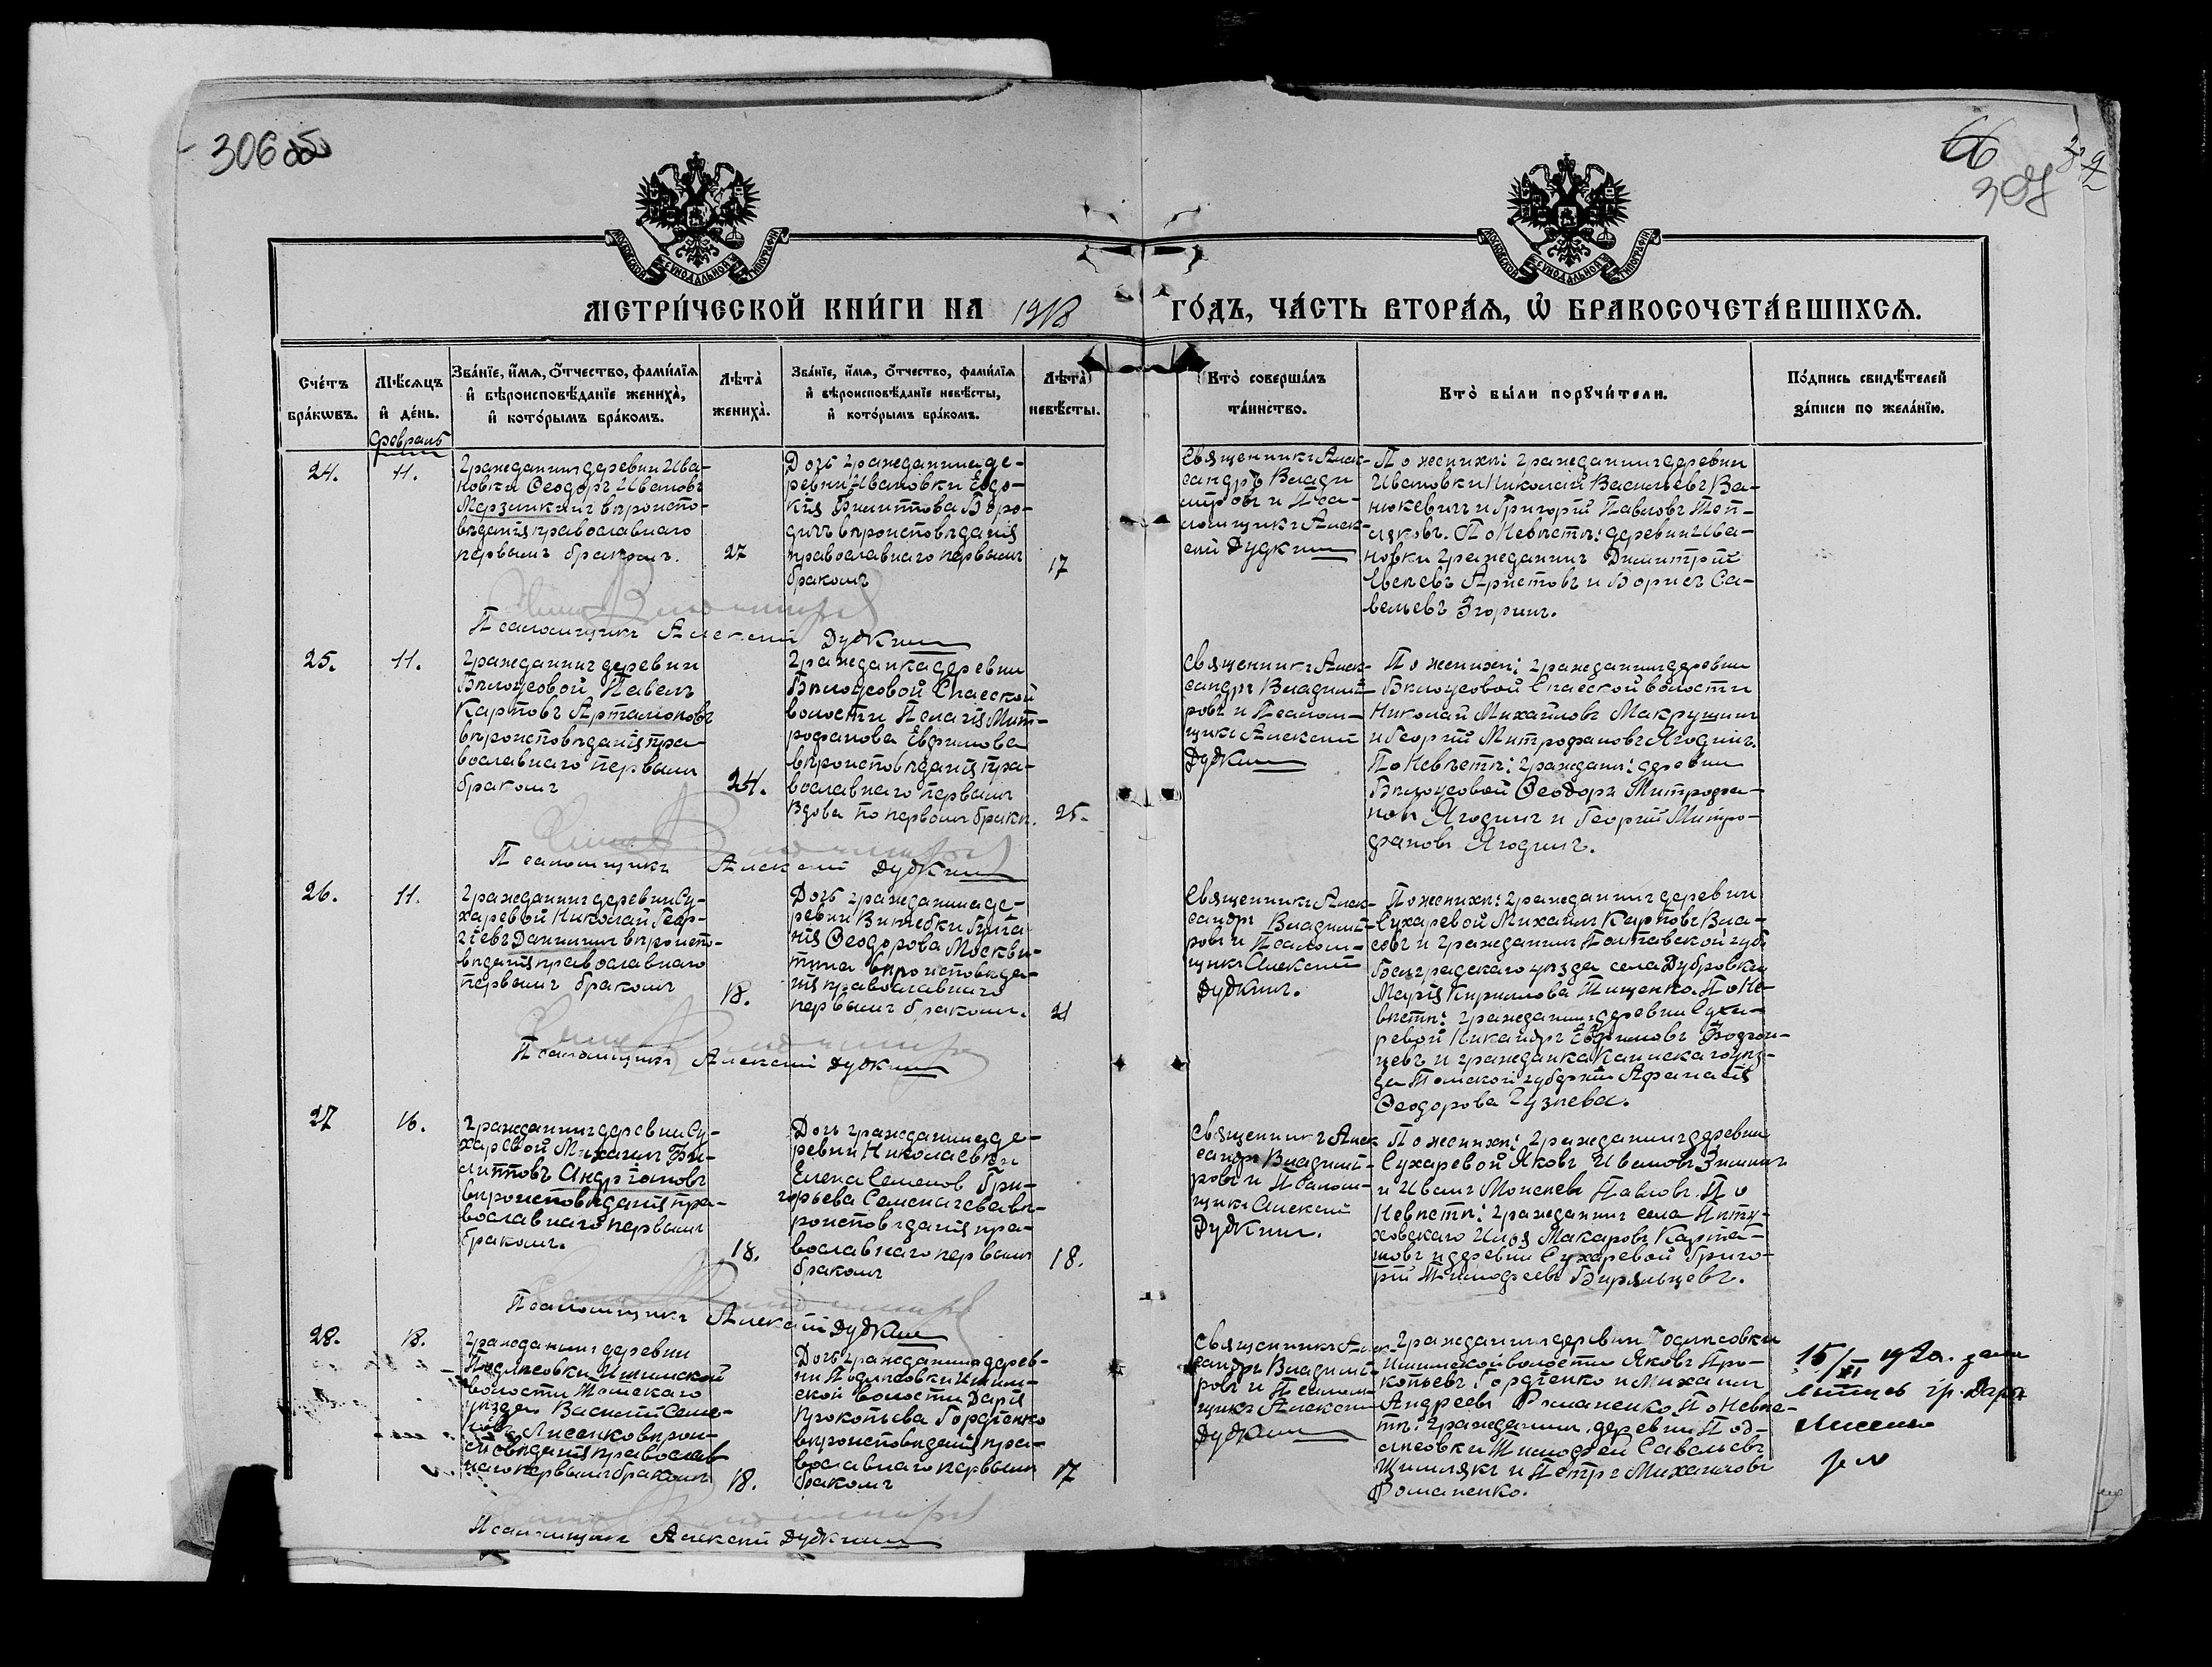 306 об
66
307
МЕТРИ́ЧЕСКОЙ КНИ́ГИ НА 1918 ГО́ДЪ, ЧА́СТЬ ВТОРА́Я, Ѡ҆ БРАКОСОЧЕТА́ВШИХСЯ.
Сче́тъ бра́ковъ.
Мѣ́сяцъ и҆ де́нь.
Зва́нїе, и҆́мя, ѻ҆́тчество, фами́лїя и҆ вѣроисповѣ́данїе жениха̀, и҆ кото́рымъ бра́комъ.
Лѣта̀ жениха̀.
Зва́нїе, и҆́мя, ѻ҆́тчество, фами́лїя и҆ вѣроисповѣ́данїе невѣ́сты, и҆ кото́рымъ бра́комъ.
Лѣта̀ невѣ́сты.
Кто̀ соверша́лъ та́инство.
Кто̀ бы́ли порꙋчи́тели.
По́дпись свидѣ́телей за́писи по жела́нїю.
Февраль
24.
11.
Гражданинъ деревни Ива-
новки Ѳеодоръ Ивановъ
Мерзликинъ вѣроиспо-
вѣданія православнаго
первымъ бракомъ.
27
Дочь гражданина де-
ревни Ивановки Евдо-
кія Филиппова Боро-
дичъ вѣроисповѣданія
православнаго первымъ
бракомъ
17
Священникъ Алек-
сандръ Влади
міровъ и Пса-
ломщикъ Алек-
сей Дудкинъ
По женихѣ: гражданинъ деревни
Ивановки Николай Васильевъ Ва-
нюкевичъ и Григорій Павловъ Теп-
ляковъ. По Невѣстѣ: деревни Ива-
новки гражданинъ Димитрій
Аристовъ и Борисъ Са-
вельевъ Згоринъ.
Псаломщикъ Алексей Дудкинъ
25.
11.
Гражданинъ деревни
Бѣлоусовой Павелъ
Карповъ Артамоновъ
вѣроисповѣданія пра-
вославнаго первымъ
бракомъ
24.
Гражданка деревни
Бѣлоусовой Спасской
волости Пелагія Мит-
рофанова Ефимова
вѣроисповѣданія пра-
вославнаго первымъ
Вдова по первомъ бракѣ.
25.
Священникъ Алек-
сандръ Владимі-
ровъ и Псалом-
щикъ Алексей
Дудкинъ
По женихѣ: гражданинъ деревни
Бѣлоусовой Спасской волости
Николай Михайловъ Макрушинъ
и Георгій Митрофановъ Ягодинъ.
По Невѣстѣ: граждане: деревни
Бѣлоусовой Ѳеодоръ Митрофа-
новъ Ягодинъ и Георгій Митро-
фановъ Ягодинъ.
Псаломщикъ Алексей Дудкинъ
26.
11.
Гражданинъ деревни Су-
харевой Николай Геор-
гіевъ Данилинъ вѣроиспо-
вѣданія православнаго
первымъ бракомъ
18.
Дочь гражданина де-
ревни Витебки
Ѳеодорова Москви-
тина вѣроисповѣда-
нія православнаго
первымъ бракомъ.
21
Священникъ Алек-
сандръ Владимі-
ровъ и Псалом-
щикъ Алексей
Дудкинъ.
По женихѣ: гражданинъ деревни
Сухаревой Михаилъ Карповъ Вла-
совъ и гражданинъ Полтавской губ.
уѣзда села Дубровки
Марія Кириллова Тищенко. По Не-
вѣстѣ: гражданинъ деревни Суха-
ревой Никандръ Ефимовъ
и гражданка Каинскаго уѣз-
да Томской губерніи Афанасія
Ѳеодорова Гузнева.
Псаломщикъ Алексей Дудкинъ
27
16.
Гражданинъ деревни Су-
харевой Михаилъ Фи-
липповъ Андріановъ
вѣроисповѣданія пра-
вославнаго первымъ
бракомъ.
18.
Дочь гражданина де-
ревни Николаевки
Елена Семенов Гри-
горьева Семенычева вѣ-
роисповѣданія пра-
вославнаго первымъ
бракомъ
18.
Священникъ Алек
сандръ Владимі-
ровъ и Псалом-
щикъ Алексей
Дудкинъ.
По женихѣ: гражданинъ деревни
Сухаревой Яковъ Ивановъ Зиминъ
и Иванъ Моисеевъ Павловъ. По
Невѣстѣ: гражданинъ села Пѣту-
ховскаго Илья Макаровъ Карта-
шовъ и деревни Сухаревой Григо-
рій Тимофеевъ Бирзынцевъ.
Псаломщикъ Алексей Дудкинъ
28.
18.
Гражданинъ деревни
Подлѣсовки Ишимской
волости Томскаго
уѣзда Василій Семе-
новъ Лисенко вѣрои-
сповѣданія православ
наго первымъ бракомъ
18.
Дочь гражданина дерев-
ни Подлѣсовки Ишим-
ской волости Дарія
Прокопьева Гордіенко
вѣроисповѣданія пра-
вославнаго первымъ
бракомъ
17
Священникъ Алек-
сандръ Владимі-
ровъ и Псалом-
щикъ Алексей
Дудкинъ
Гражданинъ деревни Подлѣсовки
Ишимской волости Яковъ Про-
копьевъ Гордіенко и Михаилъ
Андреевъ Романенко. По Невѣс-
тѣ: гражданинъ деревни Под-
лѣсовки Тимофей Савельевъ
Шимлякъ и Петръ Михайловъ
Романенко.
Псаломщикъ Алексей Дудкинъ